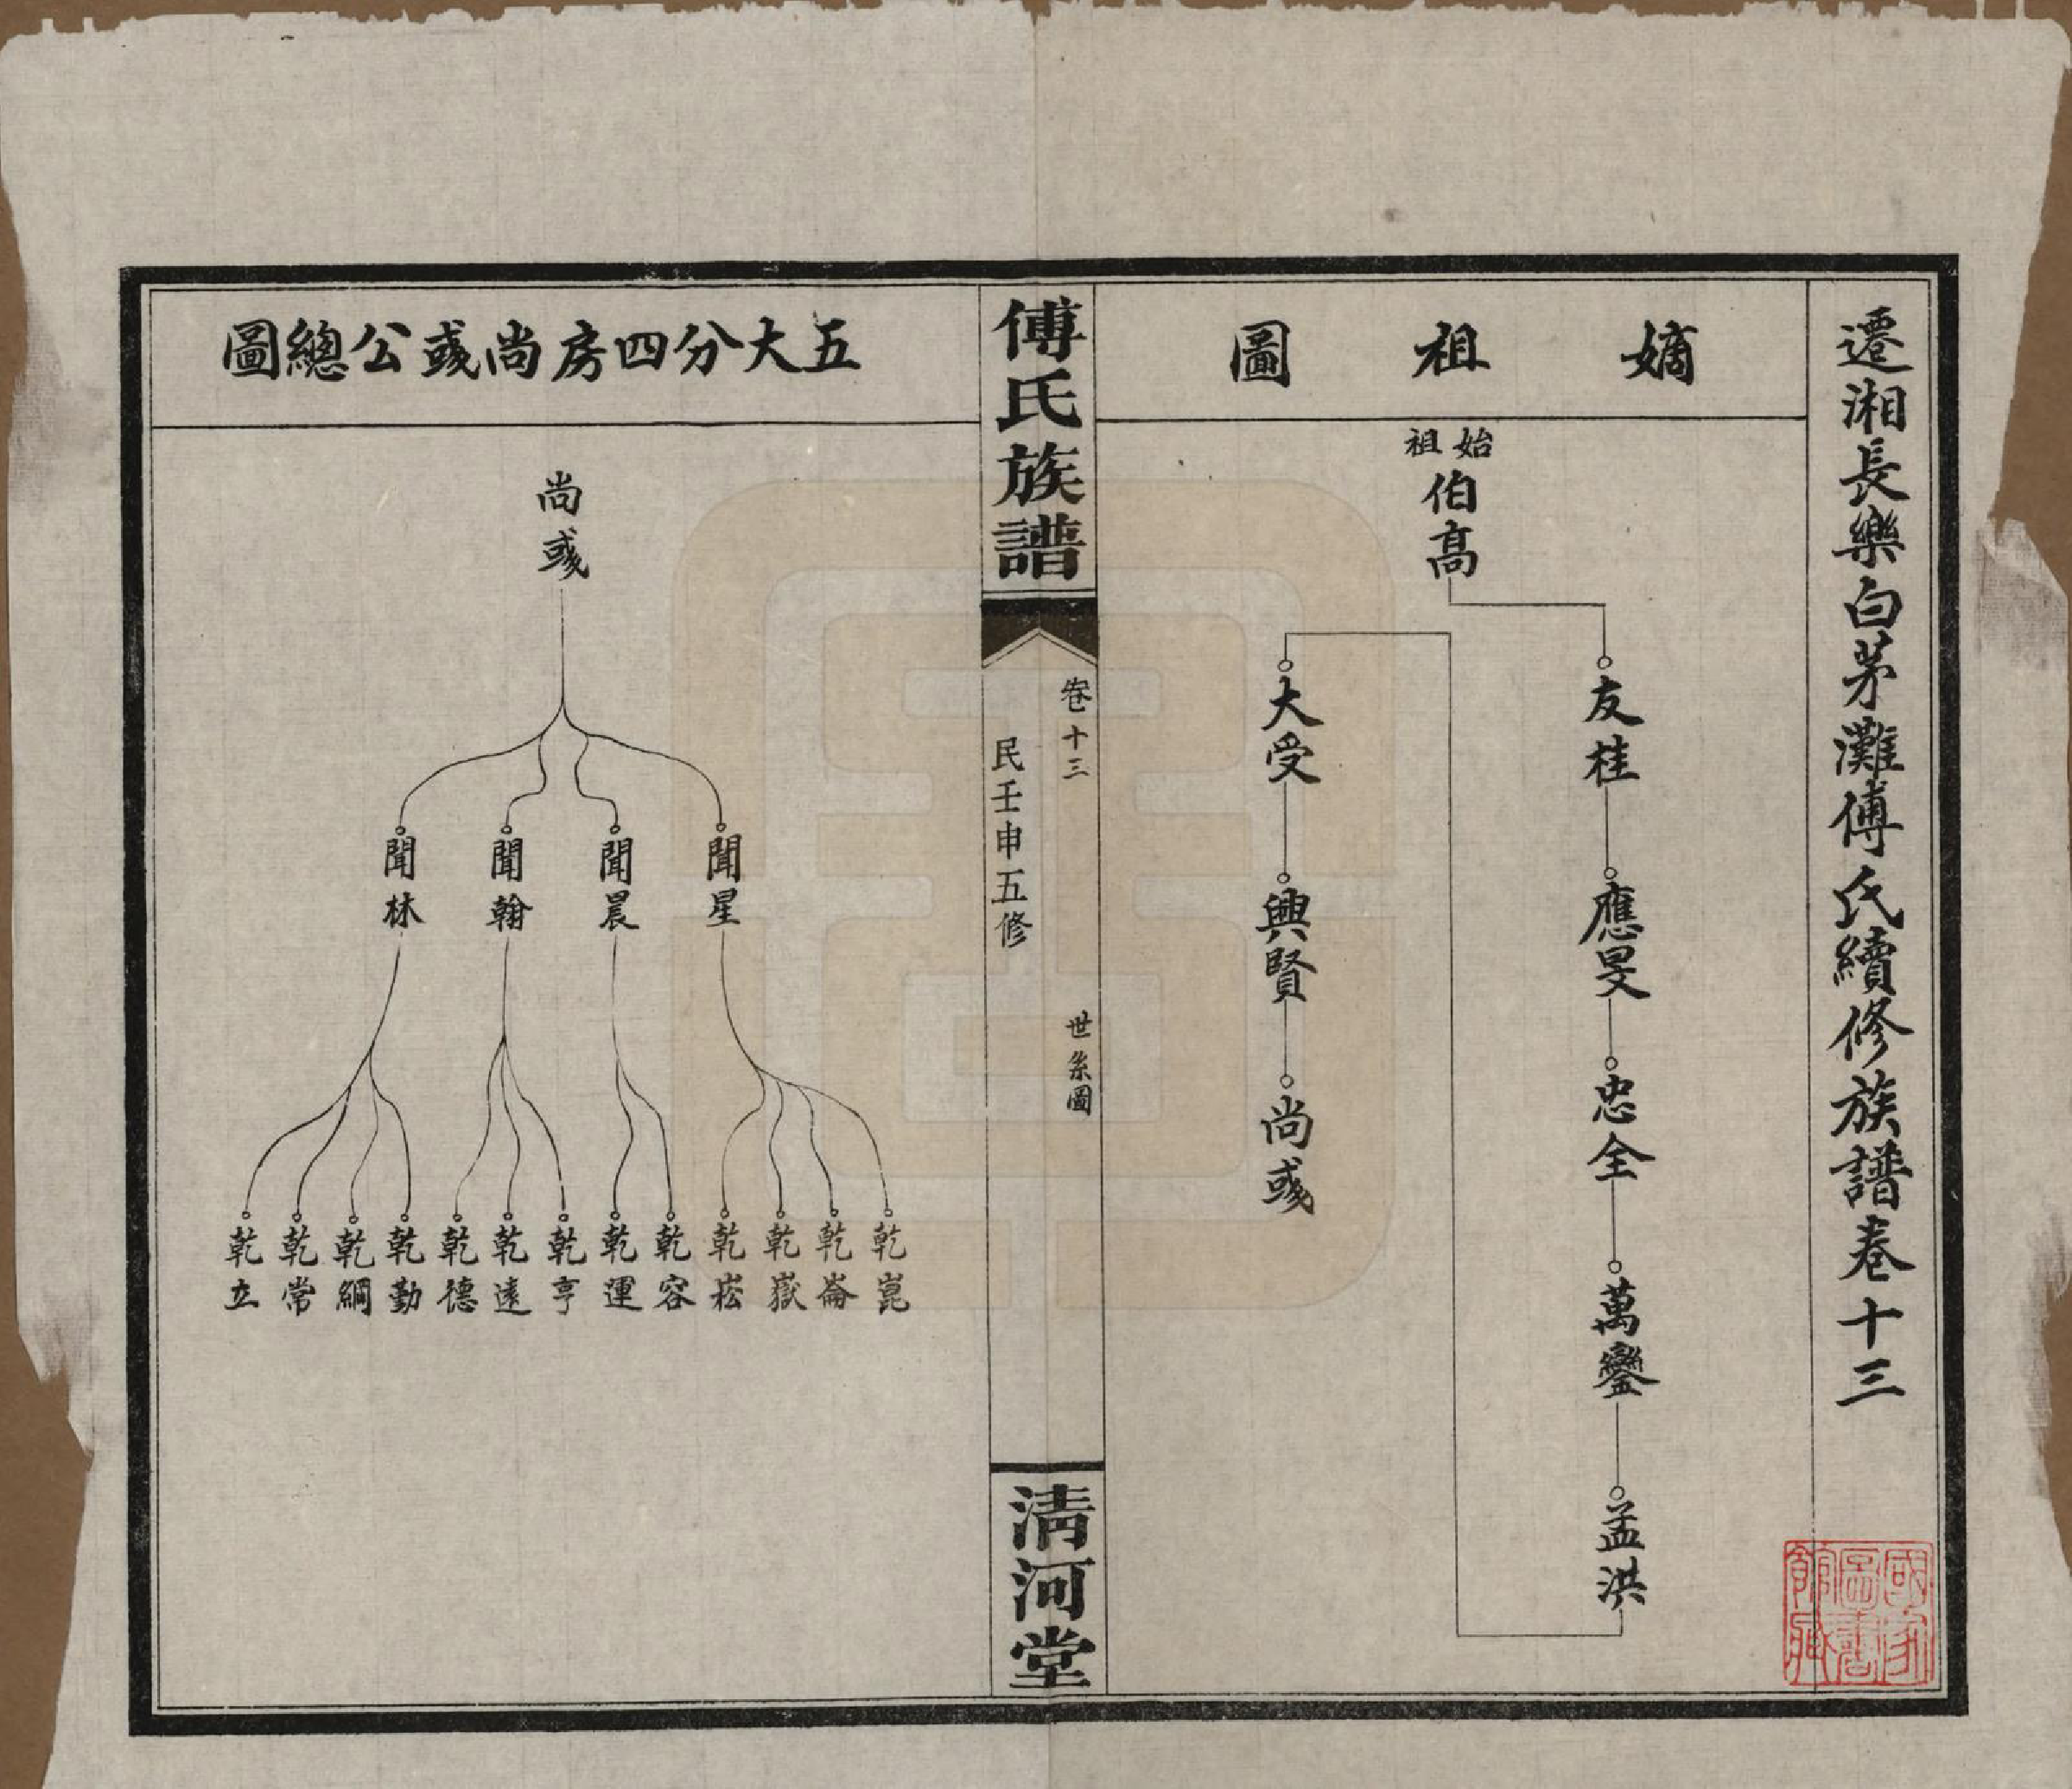 遷湘長樂白茅灘傅氏續修族譜卷十三
嫡祖圖
始祖
伯高
友桂
應旻
忠全
萬鑾
孟洪
大受
興賢
尚彧
傅氏族譜
卷十三
世系圖
民壬申五修
清河堂
五大分四房尚彧公總圖
尚彧
聞星
聞晨
聞翰
聞林
乾崑
乾崙
乾嶽
乾崧
乾容
乾運
乾亨
乾遠
乾德
乾勤
乾綱
乾常
乾立
國家圖書館藏